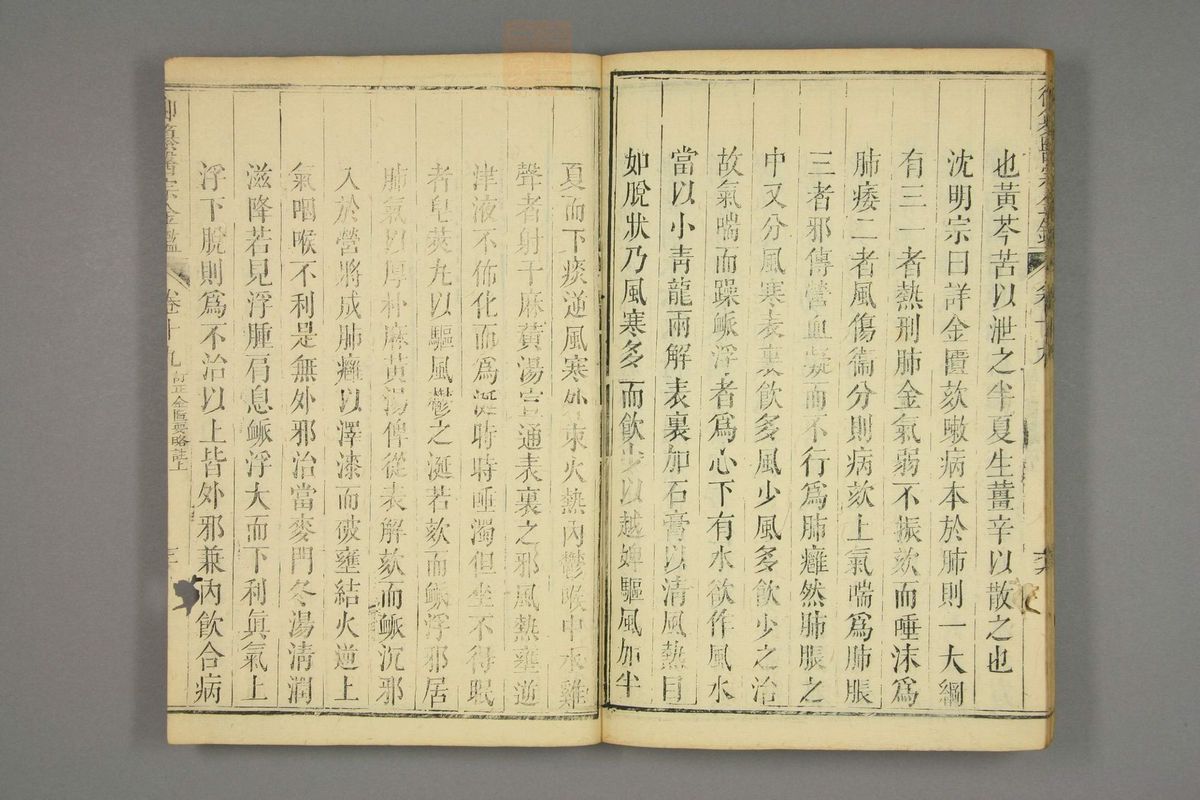 也黃芩苦以泄之半夏生薑辛以散之也
沈明宗曰詳金匱欬嗽病本於肺則一大綱
有三一者熱刑肺金氣弱不振欬而唾沫為
肺痿二者風傷衞分則病欬上氣喘為肺脹
三者邪傳營血凝而不行為肺癰然肺脹之
中又分風寒表裏飲多風少風多飲少之治
故氣喘而躁𧖴浮者為心下有水欲作風水
當以小青龍兩解表裏加石膏以清風熱目
如脫狀乃風寒多而飲少以越婢驅風加半
夏而下痰逆風寒外束火熱內鬱喉中水雞
聲者射干麻黃湯宣通表裏之邪風熱壅逆
津液不佈化而為涎時時唾濁但坐不得眠
者皂莢丸以驅風鬱之涎若欬而𧖴浮邪居
肺氣以厚朴麻黃湯俾從表解欬而𧖴沉邪
入於營將成肺癰以澤漆而破壅結火逆上
氣咽喉不利是無外邪治當麥門冬湯清潤
滋降若見浮腫肩息𧖴浮大而下利眞氣上
浮下脫則為不治以上皆外邪兼內飲合病
御纂醫宗金鑑
卷十九
訂正金匱要略註上